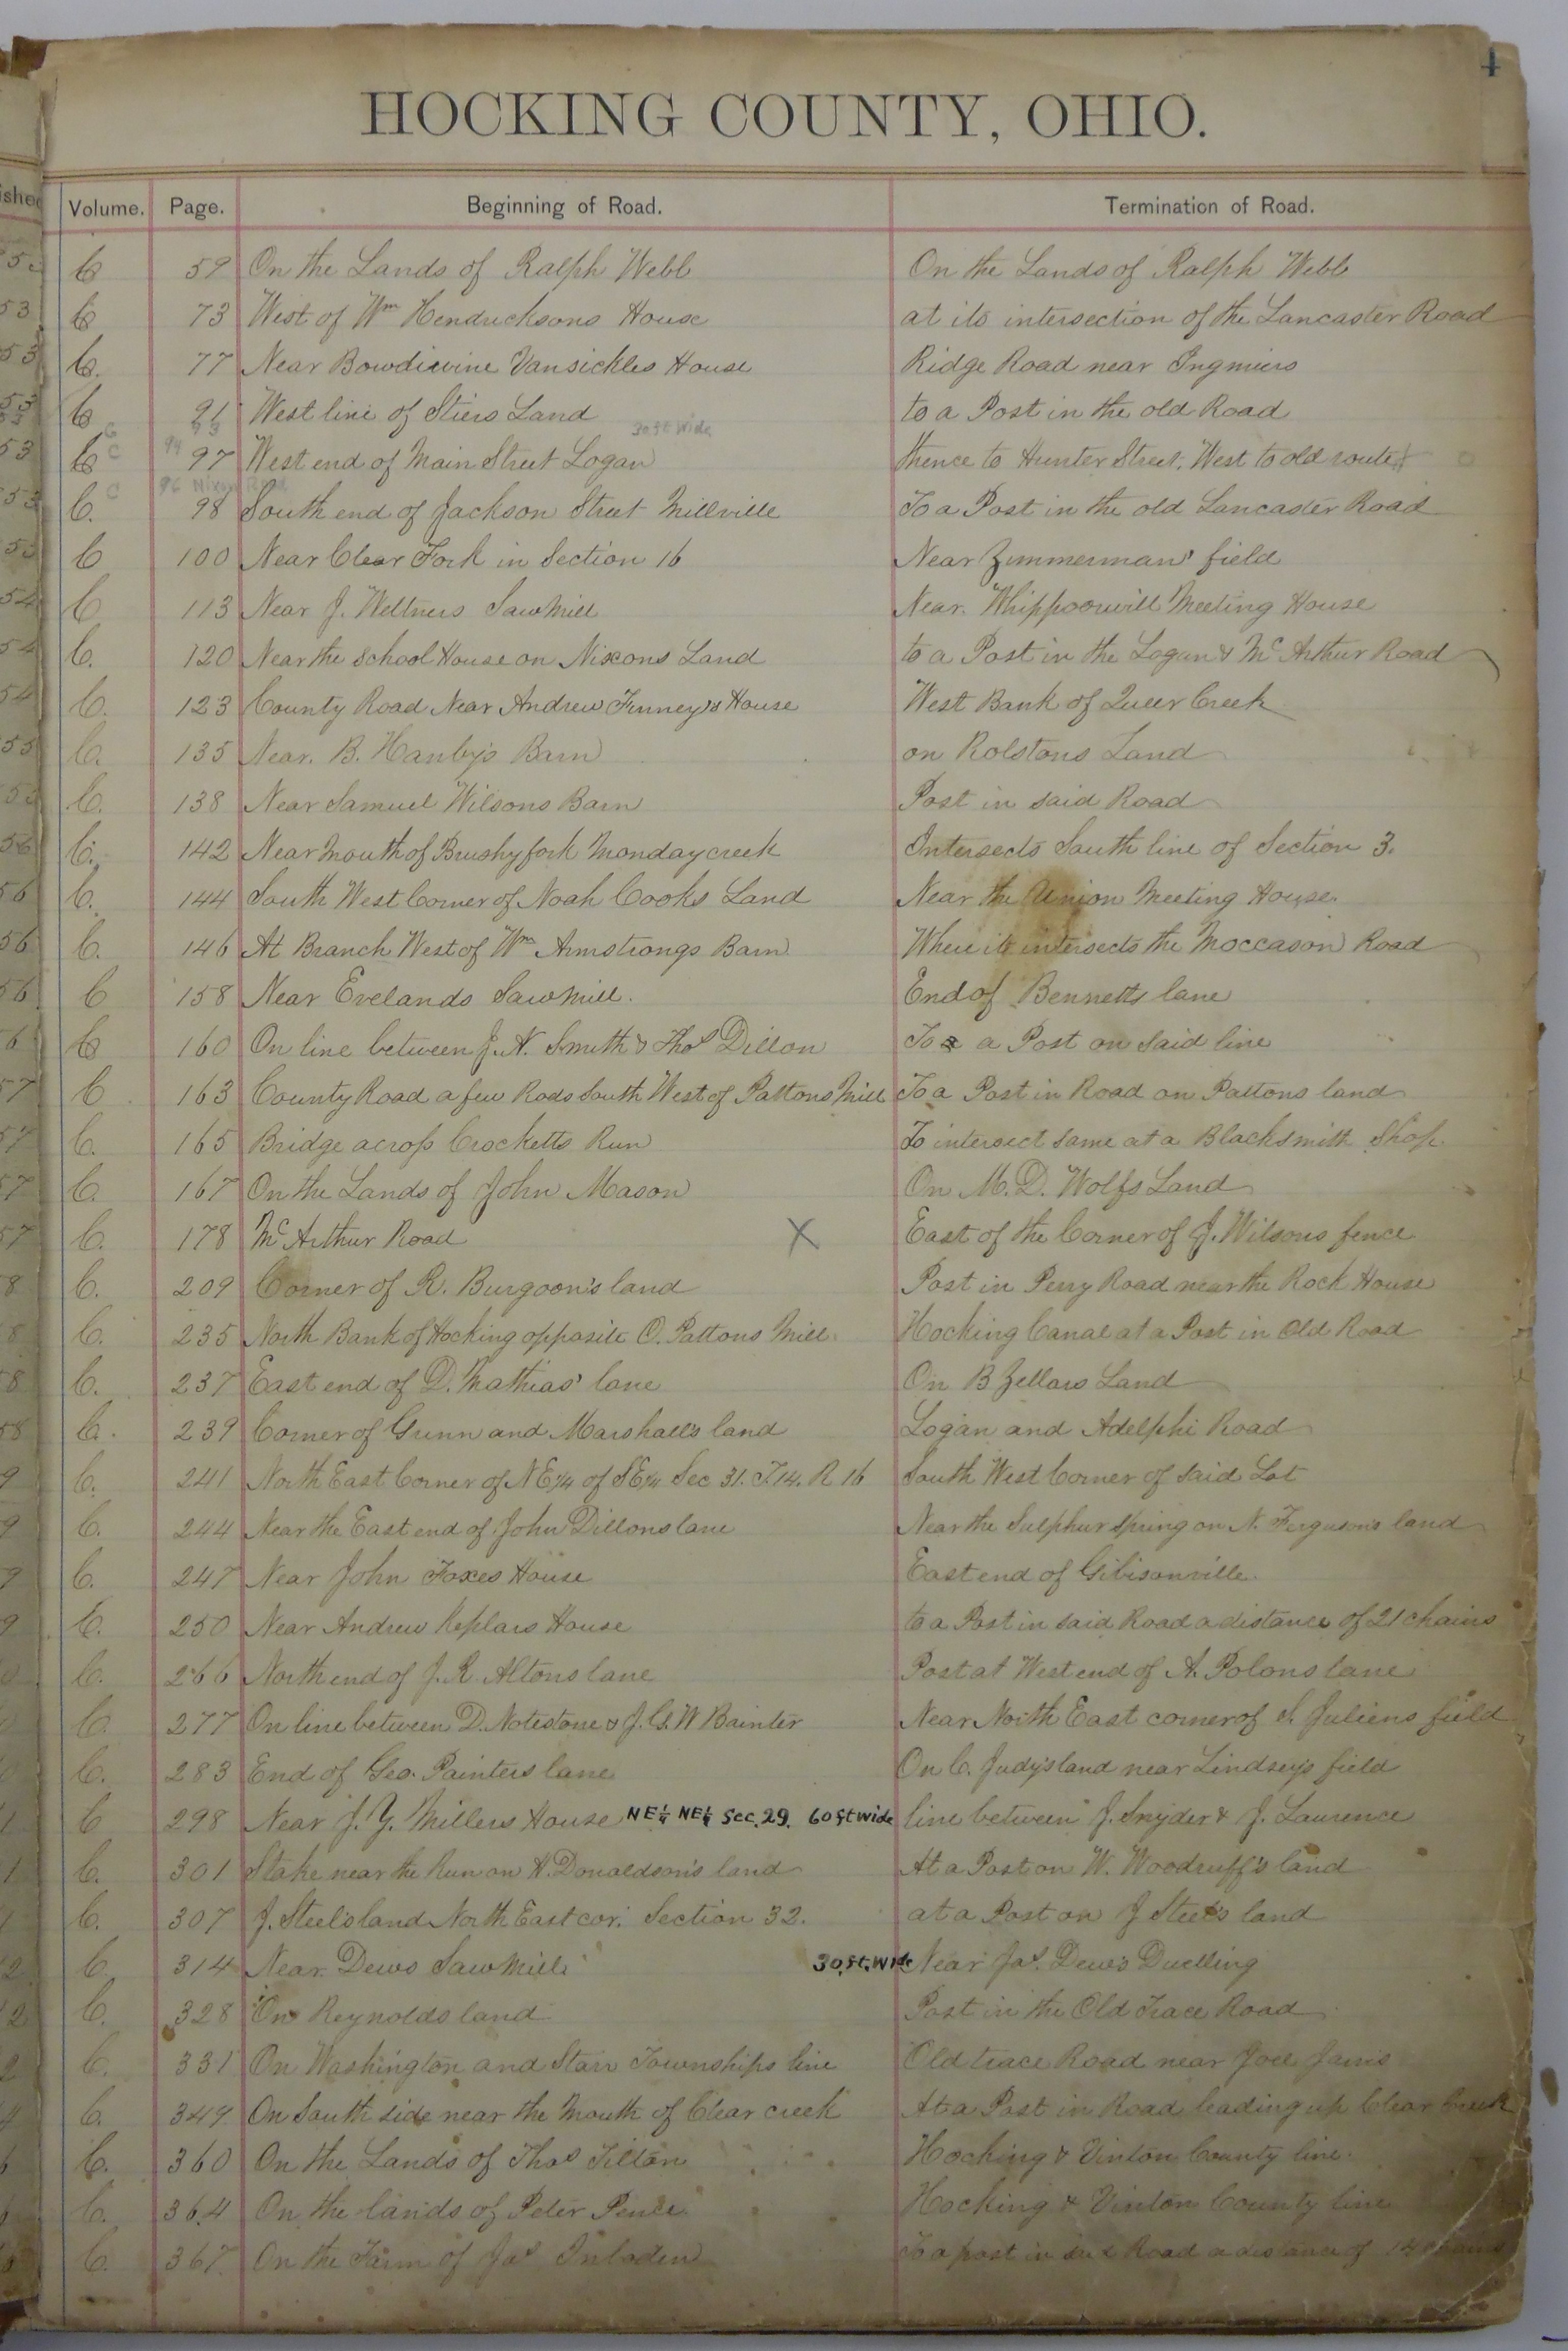 4
HOCKING COUNTY, OHIO.
Volume. Page. Beginning of Road. Termination of Road.
C 59 On the Lands of Ralph Webb On the Lands of Ralph Webb
C 73 West of Wm Hendricksons House at its intersection of the Lancaster Road
C. 77 Near Vansickles House Ridge Road near
C 91 West line of Stiers Land to a Post in the old Road
30 ft Wide
C 97 West end of Main Street Logan thence to Hunter Street, West to old route
96 Nixon Road
C. 98 South end of Jackson Street Millville To a Post in the old Lancaster Road
C 100 Near Clear Fork in Section 16 Near Zimmerman's field
C 113 Near J. Weltners Saw Mill Near. Whippoorwill Meeting House
C. 120 Near the School House on Nixons Land to a Post in the Logan & Mc Arthur Road
C. 123 County Road Near Andrew Finney's House West Bank of Queer Creek
C. 135 Near. B. Hanby's Barn on Rolstons Land
C. 138 Near Samuel Wilsons Barn Post in said Road
C. 142 Near Mouth of Brushy fork Monday creek Intersects South line of Section 3.
C. 144 South West Corner of Noah Cooks Land Near the Union Meeting House.
C. 146 At Branch West of Wm Armstrongs Barn Where it intersects the Moccason Road
C 158 Near Evelands Saw Mill. End of Bennetts lane
C 160 On line between J. N. Smith & Thos Dillon To a Post on said line
C 163 County Road a few Rods South West of Pattons Mill To a Post in Road on Pattons land
C. 165 Bridge across Crocketts Run To intersect same at a Blacksmith Shop.
C. 167 On the Lands of John Mason On M. D. Wolfs Land
C. 178 Mc Arthur Road X East of the Corner of J. Wilsons fence
C. 209 Corner of R. Burgoon's land Post in Perry Road near the Rock House
C. 235 North Bank of Hocking opposite O. Pattons Mill Hocking Canal at a Post in Old Road
C. 237 East end of D. Mathias' lane On B Zellars Land
C. 239 Corner of Gunn and Marshall's land Logan and Adelphi Road
C. 241 North East Corner of NE 1/4 of SE 1/4 Sec 31. T. 14. R 16 South West Corner of said Lot
C. 244 Near the East end of John Dillons lane Near the Sulphur Spring on N. Ferguson's land
C. 247 Near John Foxes House East end of Gibisonville.
C. 250 Near Andrew Keplars House to a Post in said Road a distance of 21 chains
C. 266 North end of J. R. Altons lane Post at West end of A. Polons lane
C. 277 On line between D. Notestone & J. G. W Bainter Near North East corner of S. Juliens field
C. 283 End of Geo. Painters lane On C. Judy's land near Lindsey's field
C 298 Near J. Y. Millers House NE 1/4 NE 1/4 Sec. 29. 60 ft wide line between J. Snyder & J. Laurence
C. 301 Stake near the Run on H. Donaldson's land At a Post on W. Woodruff's land
C. 307 J. Steels land North East cor. Section 32. at a Post on J Steels land
C. 314 Near Dews Saw Mill 30 ft. Wide Near Jas. Dew's Duelling
C. 328 On Reynolds land Post in the Old Trace Road
C. 331 On Washington and Starr Townships line Old trace Road near Joel
C. 349 On South side near the Mouth of Clear creek At a Post in Road leading up Clear Creek
C. 360 On the Lands of Thos Tilton Hocking & Vinton County line.
C. 364 On the lands of Peter Pence Hocking & Vinton County line
C. 367. On the Farm of Jas Inboden To a post in said Road a distance of 14 chains